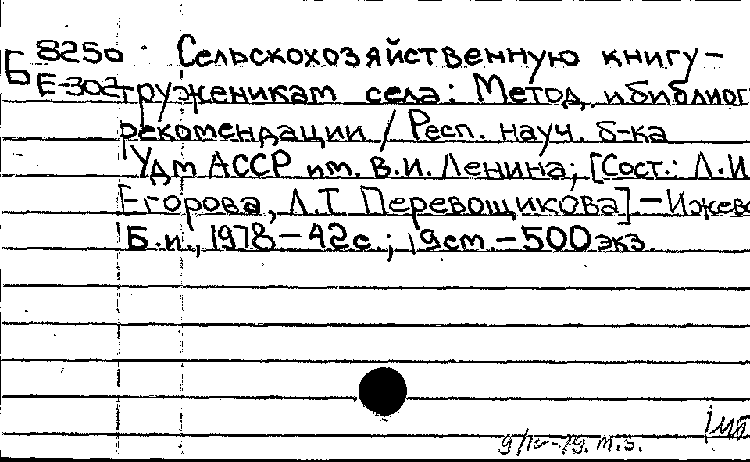 Б 8250 Сельскохозяйственную книгу-
Е-302 труженикам села: Метод. и библиог
рекомендации / Респ. науч. б-ка
Удм АССР им. В.И. Ленина; [Сост.: Л.И
Егорова, Л.Т. Перевощикова].-Ижев
Б.и., 1978-42с.; 19см.-500экз.
9/IV-79. т.з.